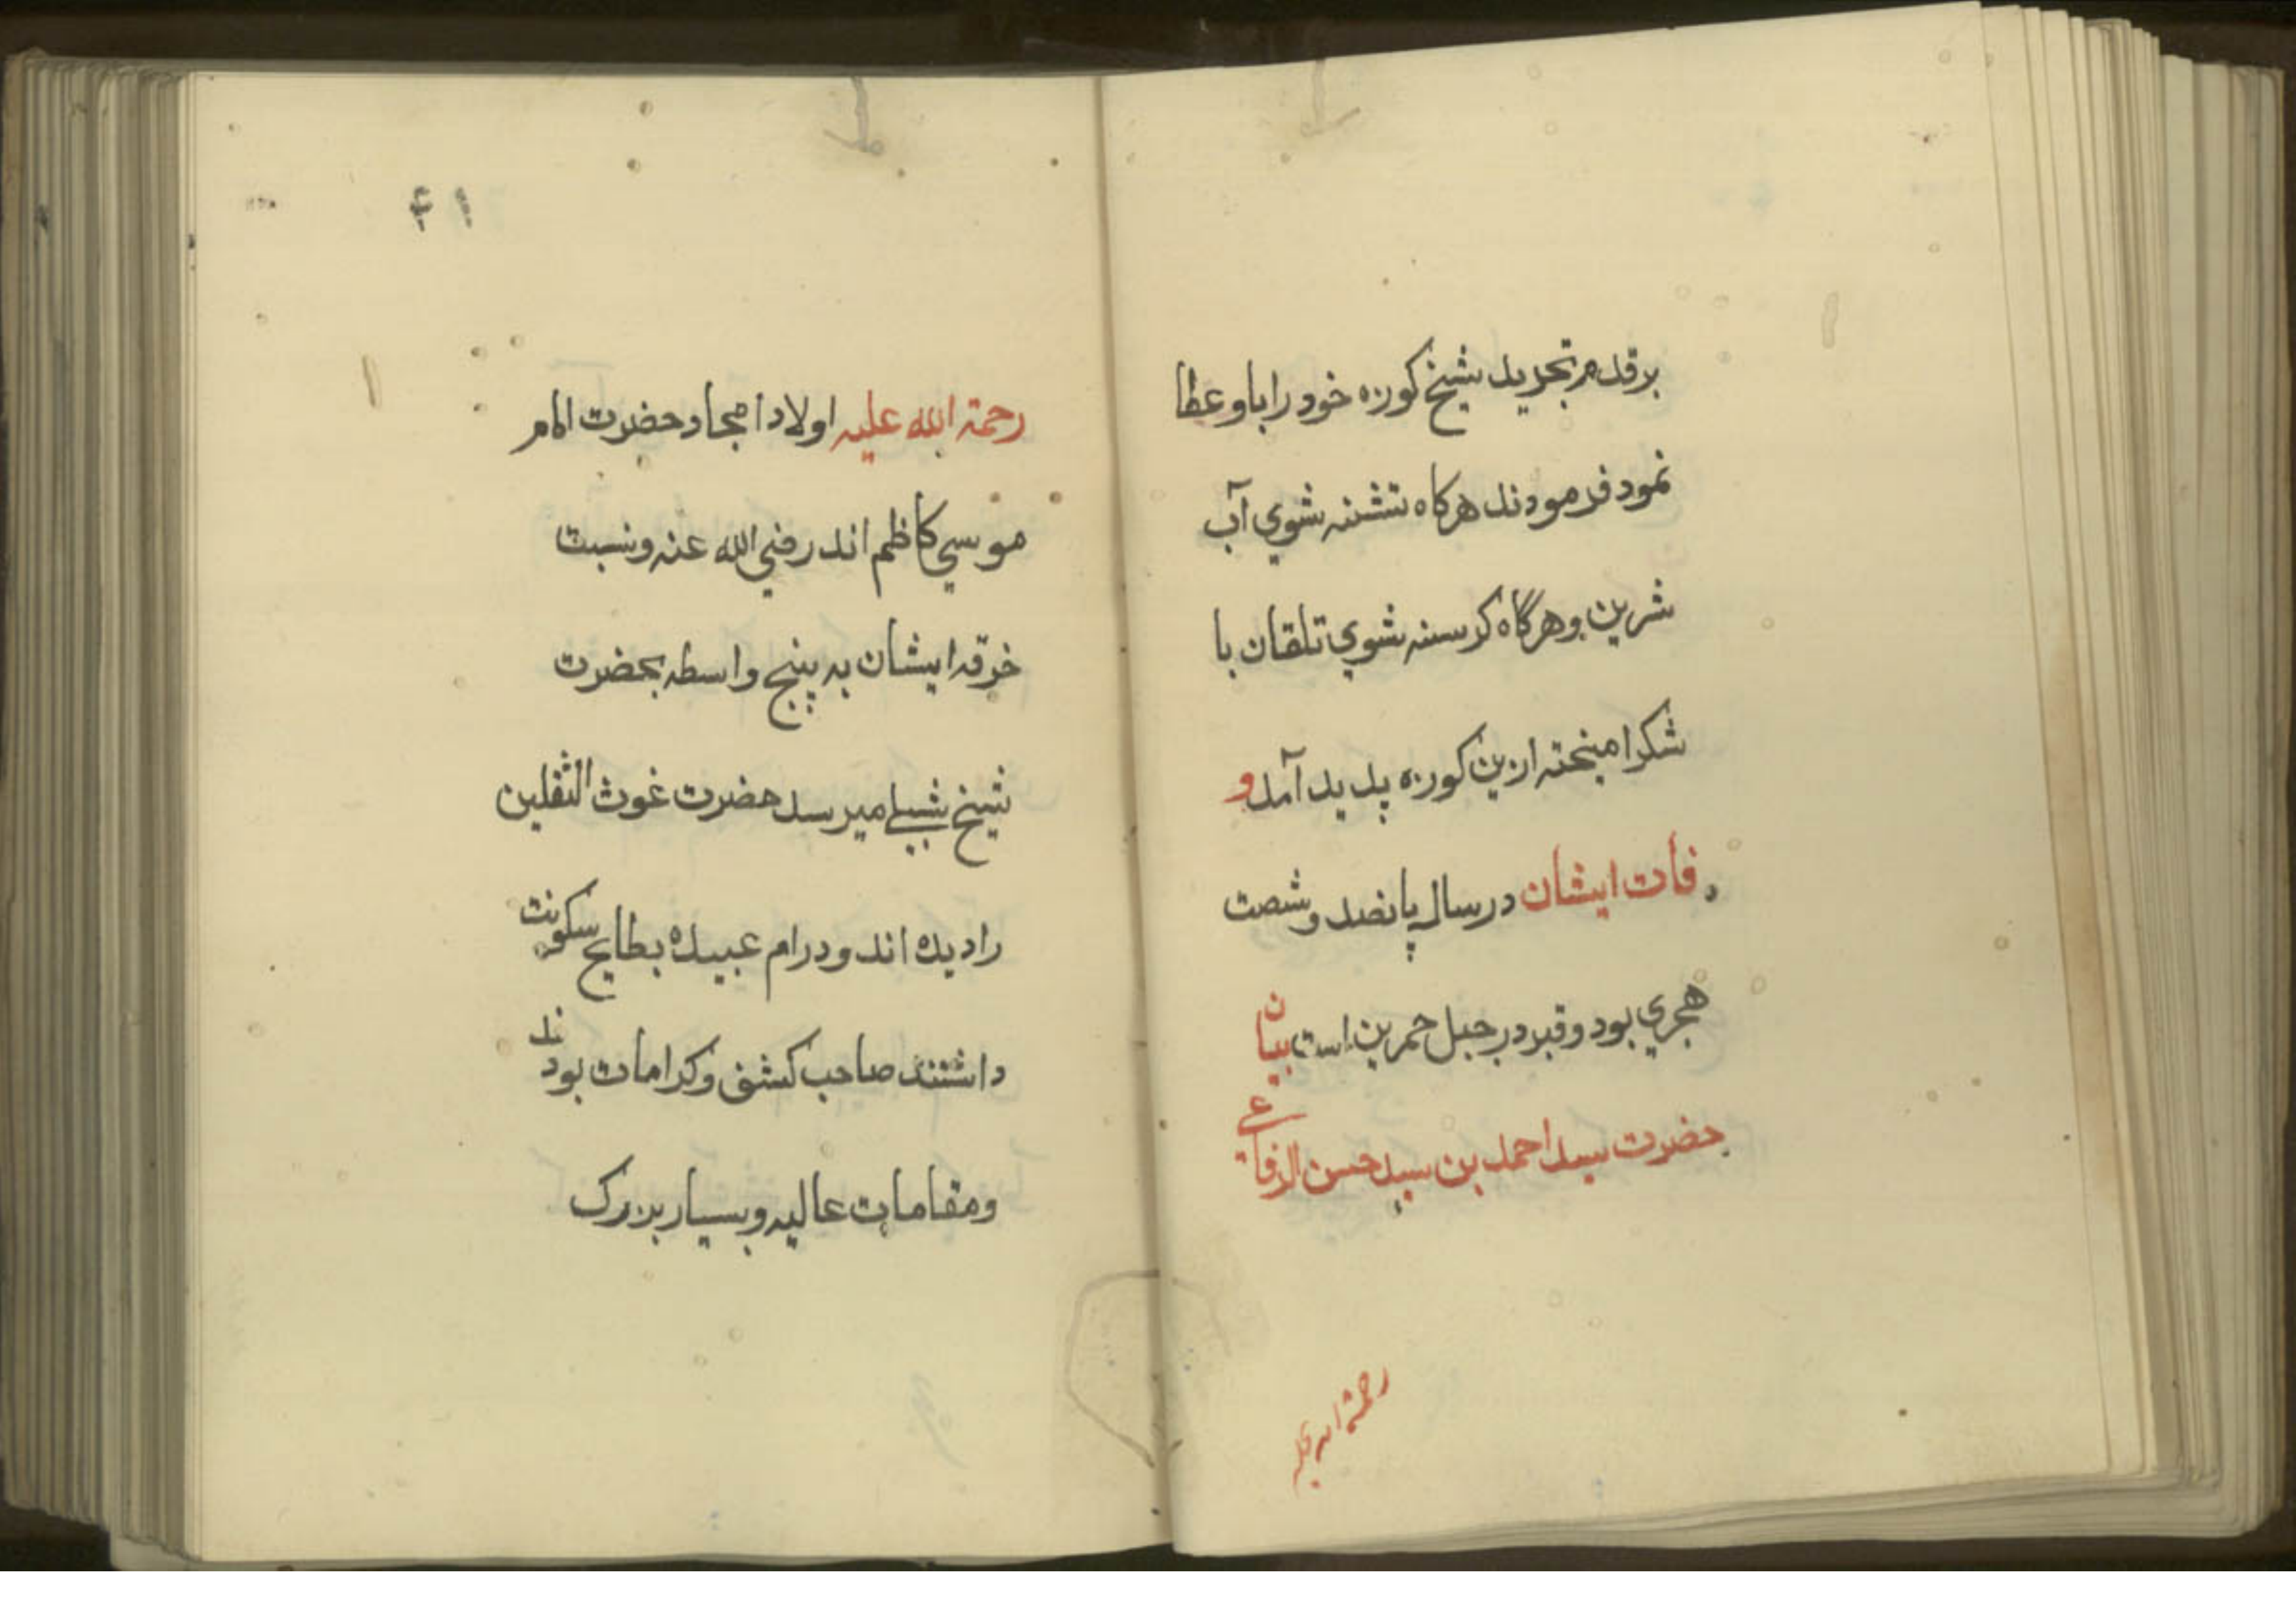 برقدم تجرید شیخ کوزه خود را باو عطا
نمود فرمودند هرکاه تشنه شوی آب
شرین و هرگاه کرسنه شوي تلقان با
شکر امیخته ازین کوزه پدید آمد و
وفات ایشان در سال پانصد و شصت
هجري بود و قبر در جبل حمرین است بیان
حضرت سید احمد بن سید حسن الرفاعے
رحمة الله علیه
۴۱
رحمة الله علیه اولاد امجاد حضرت امام
موسي کاظم اند رضي الله عنه و نسبت
خرقه ایشان به پنج واسطه بحضرت
شیخ شبلے میرسد حضرت غوث الثقلین
را دیده اند و در ام عبیده بطایح سکونت
داشتند صاحب کشف و کرامات بودند
و مقامات عالیه و بسیار بزرک